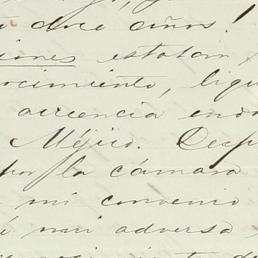 doce años!
iones estaban
ocimiento, liqu
creencia
Méjico. Desp
por la cámara
mi convenio
é mui adversa